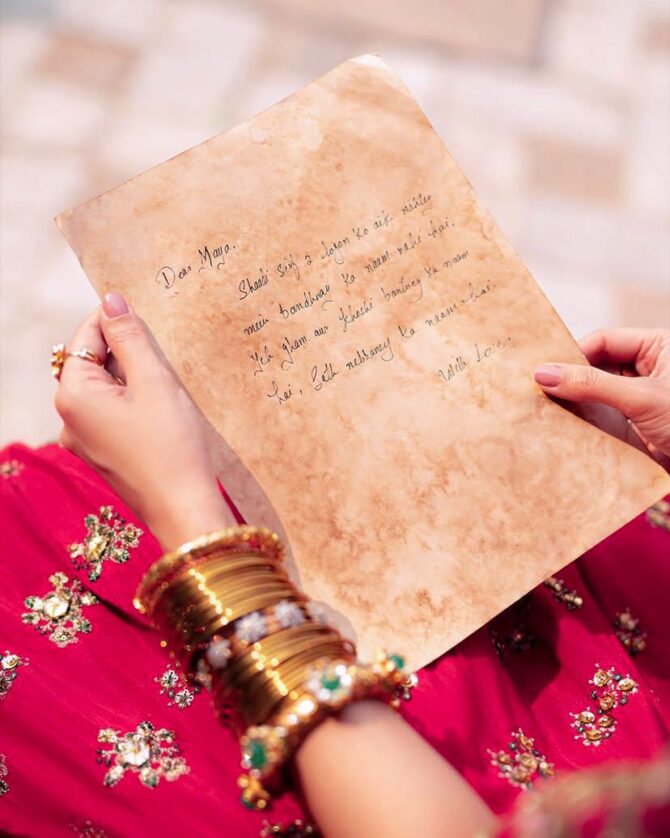 Dear Maya,
Shaadi sirf 2 logon ko aik rishtey
mein bandhnay ka naam nahi hai.
Yeh gham aur khushi bantney ka naam
hai, Sath nebhaney ka naam hai.
With Love,